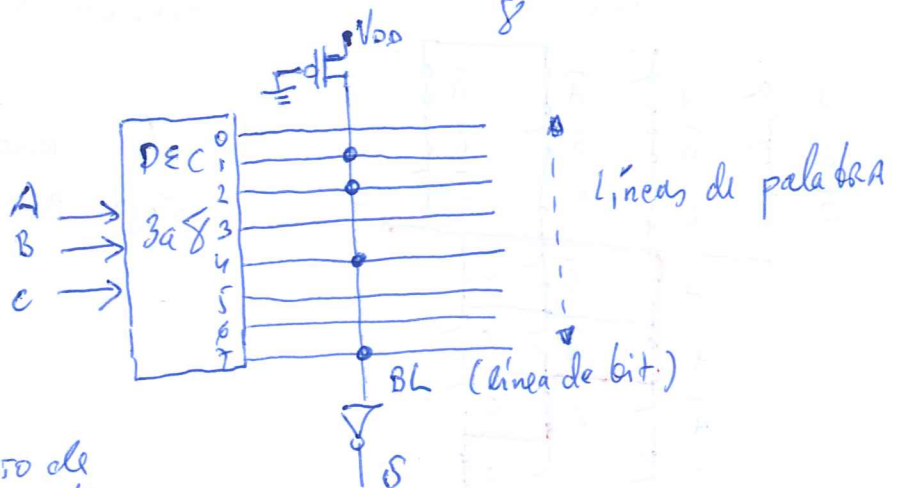 8
VDD
DEC
3a8
0
1
2
3
4
5
6
7
A
B
C
Líneas de palabRA
BL (línea de bit.)
so de
S